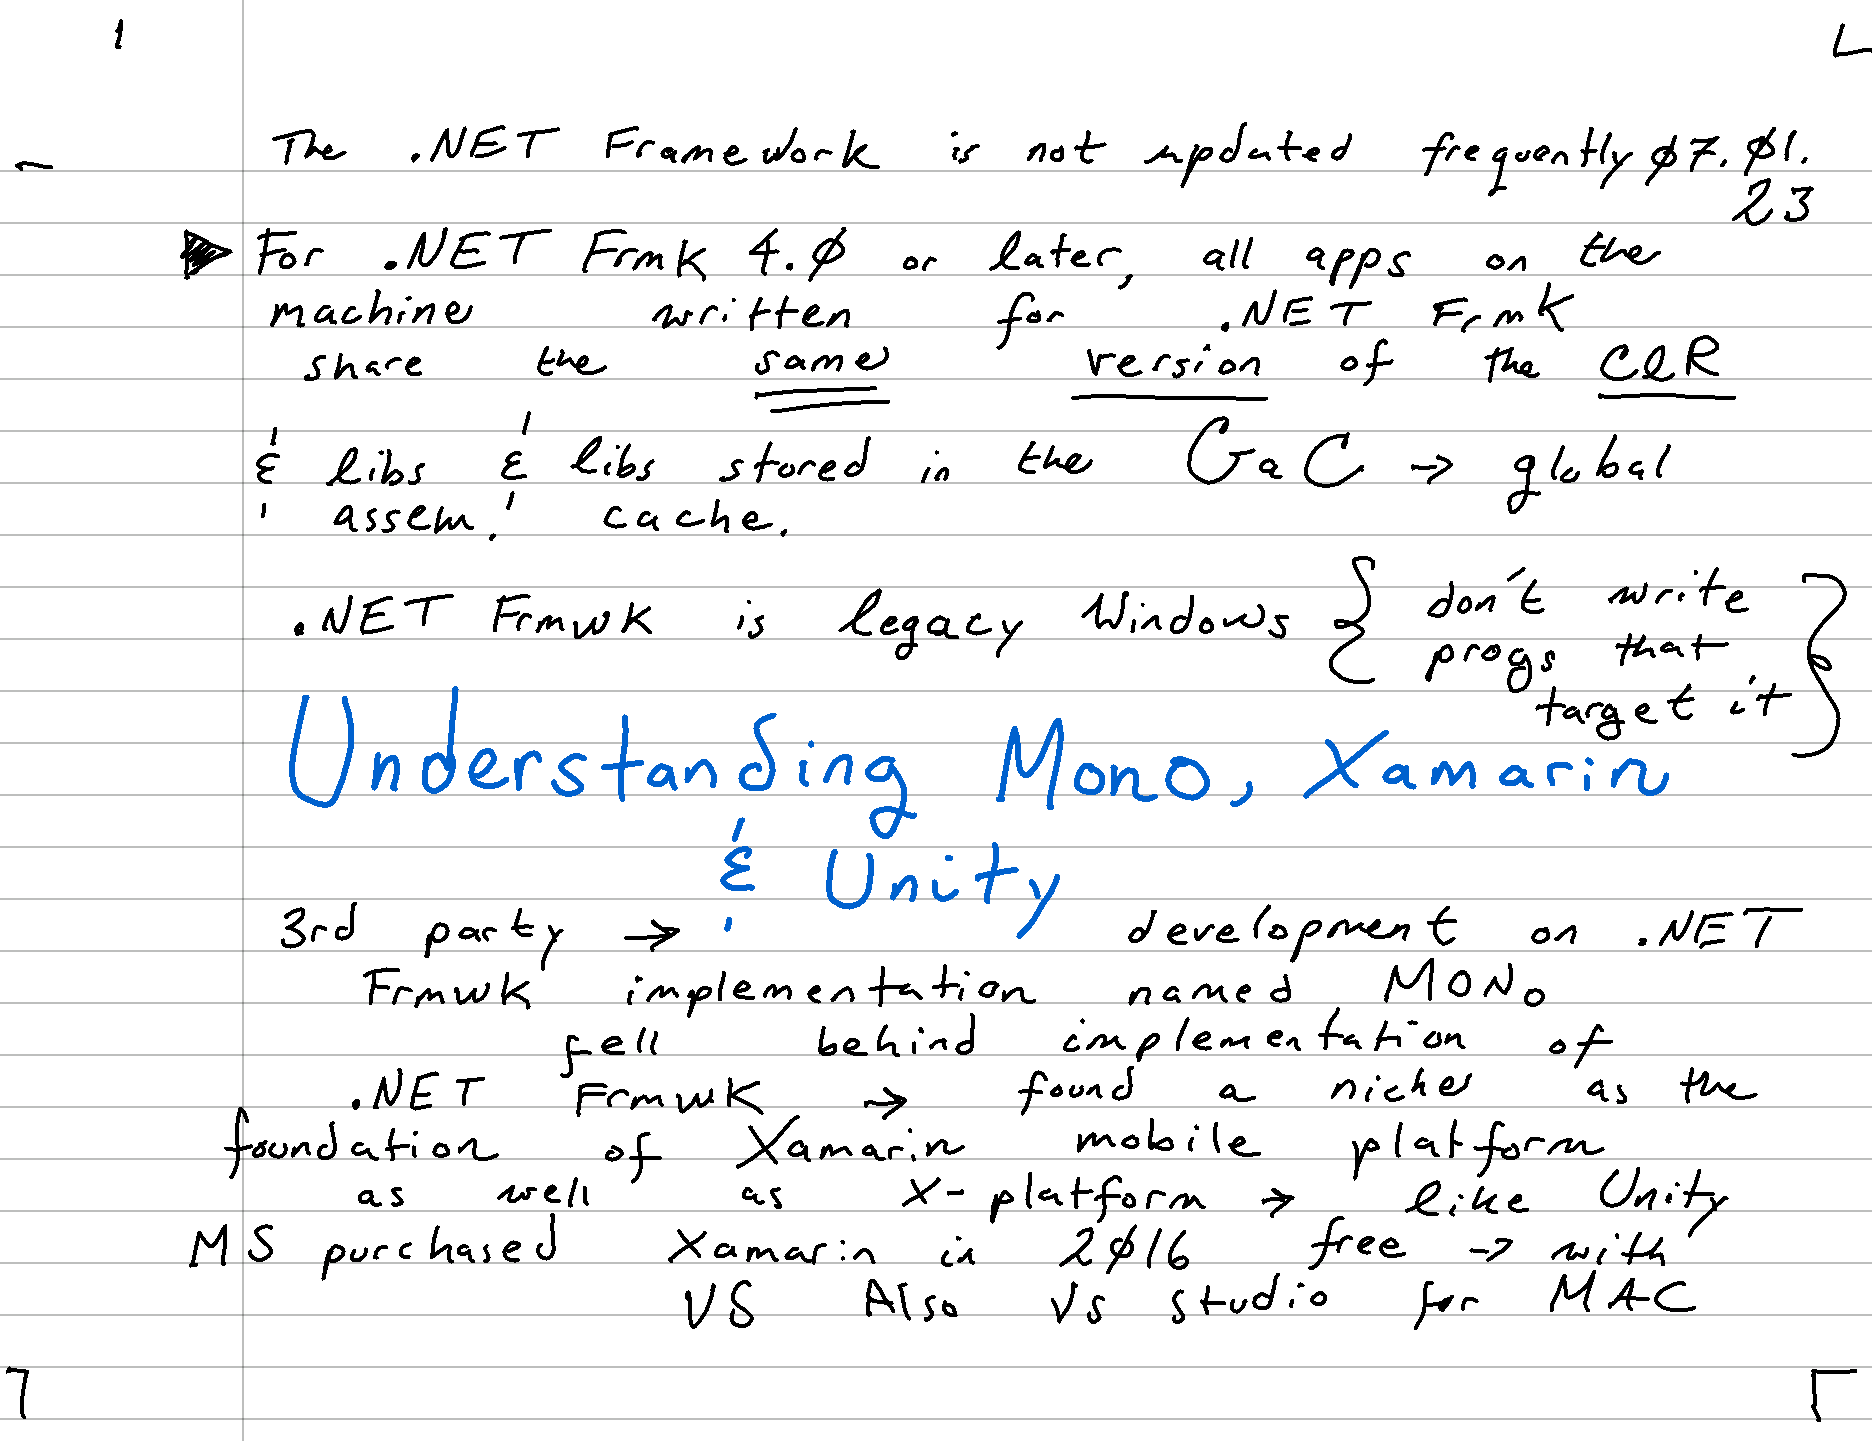 The .NET Framework is not updated frequently 07.01.
23
For .NET Frmk 4.0 or later, all apps on the
machine written for .NET Frmk
share the same version of the CLR
& libs & libs stored in the GaC → global
assem. cache.
.NET Frmwk is legacy Windows { don't write
progs that
target it }
Understanding Mono, Xamarin
& Unity
3rd party → development on .NET
Frmwk implementation named MONO
fell behind implementation of
.NET Frmwk → found a niche as the
foundation of Xamarin mobile platform
as well as X-platform → like Unity
MS purchased Xamarin in 2016 free → with
VS Also VS studio for MAC